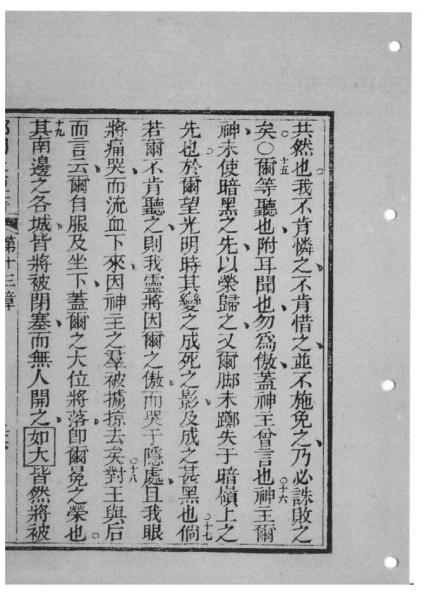 共然也我不肯憐之不肯惜之並不施免之乃必誅敗之
矣○十五爾等聽也附耳聞也勿爲傲蓋神王曾言也十六神王爾
神未使暗黑之先以榮歸之又爾脚未躑失于暗嶺上之
先也於爾望光明時其變之成死之影及成之甚黑也十七倘
若爾不肯聽之則我靈將因爾之傲而哭于隱處且我眼
將痛哭而流血下來因神王之羣被擄掠去矣十八對王與后
而言云爾自服及坐下蓋爾之大位將落卽爾冕之榮也
十九其南邊之各城皆將被閉塞而無人開之如大皆然將被
第十三章